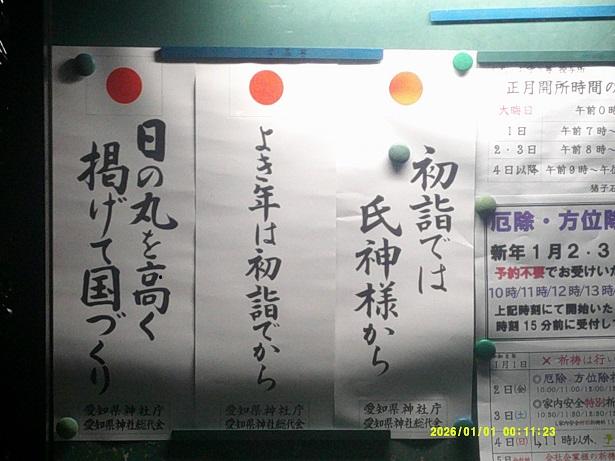 初詣では
氏神様から
愛知県神社庁
愛知県神社総代会
よき年は初詣でから
愛知県神社庁
愛知県神社総代会
日の丸を高く
掲げて国づくり
愛知県神社庁
愛知県神社総代会
正月開所時間の
大晦日 午前0時
1日 午前7時〜
2・3日 午前8時〜
4日以降 午前9時〜午後
猪子石
厄除・方位除
新年1月2・3
予約不要でお受けいた
10時/11時/12時/13時/
上記時刻にて開始いた
時刻15分前に受付し
1月1日 × 祈祷は行い
2日(金) ◎厄除・方位除
3日(土) ◎家内安全特別祈
4日(日) 11時以外、予
会社企業様の新
2026/01/01 00:11:23